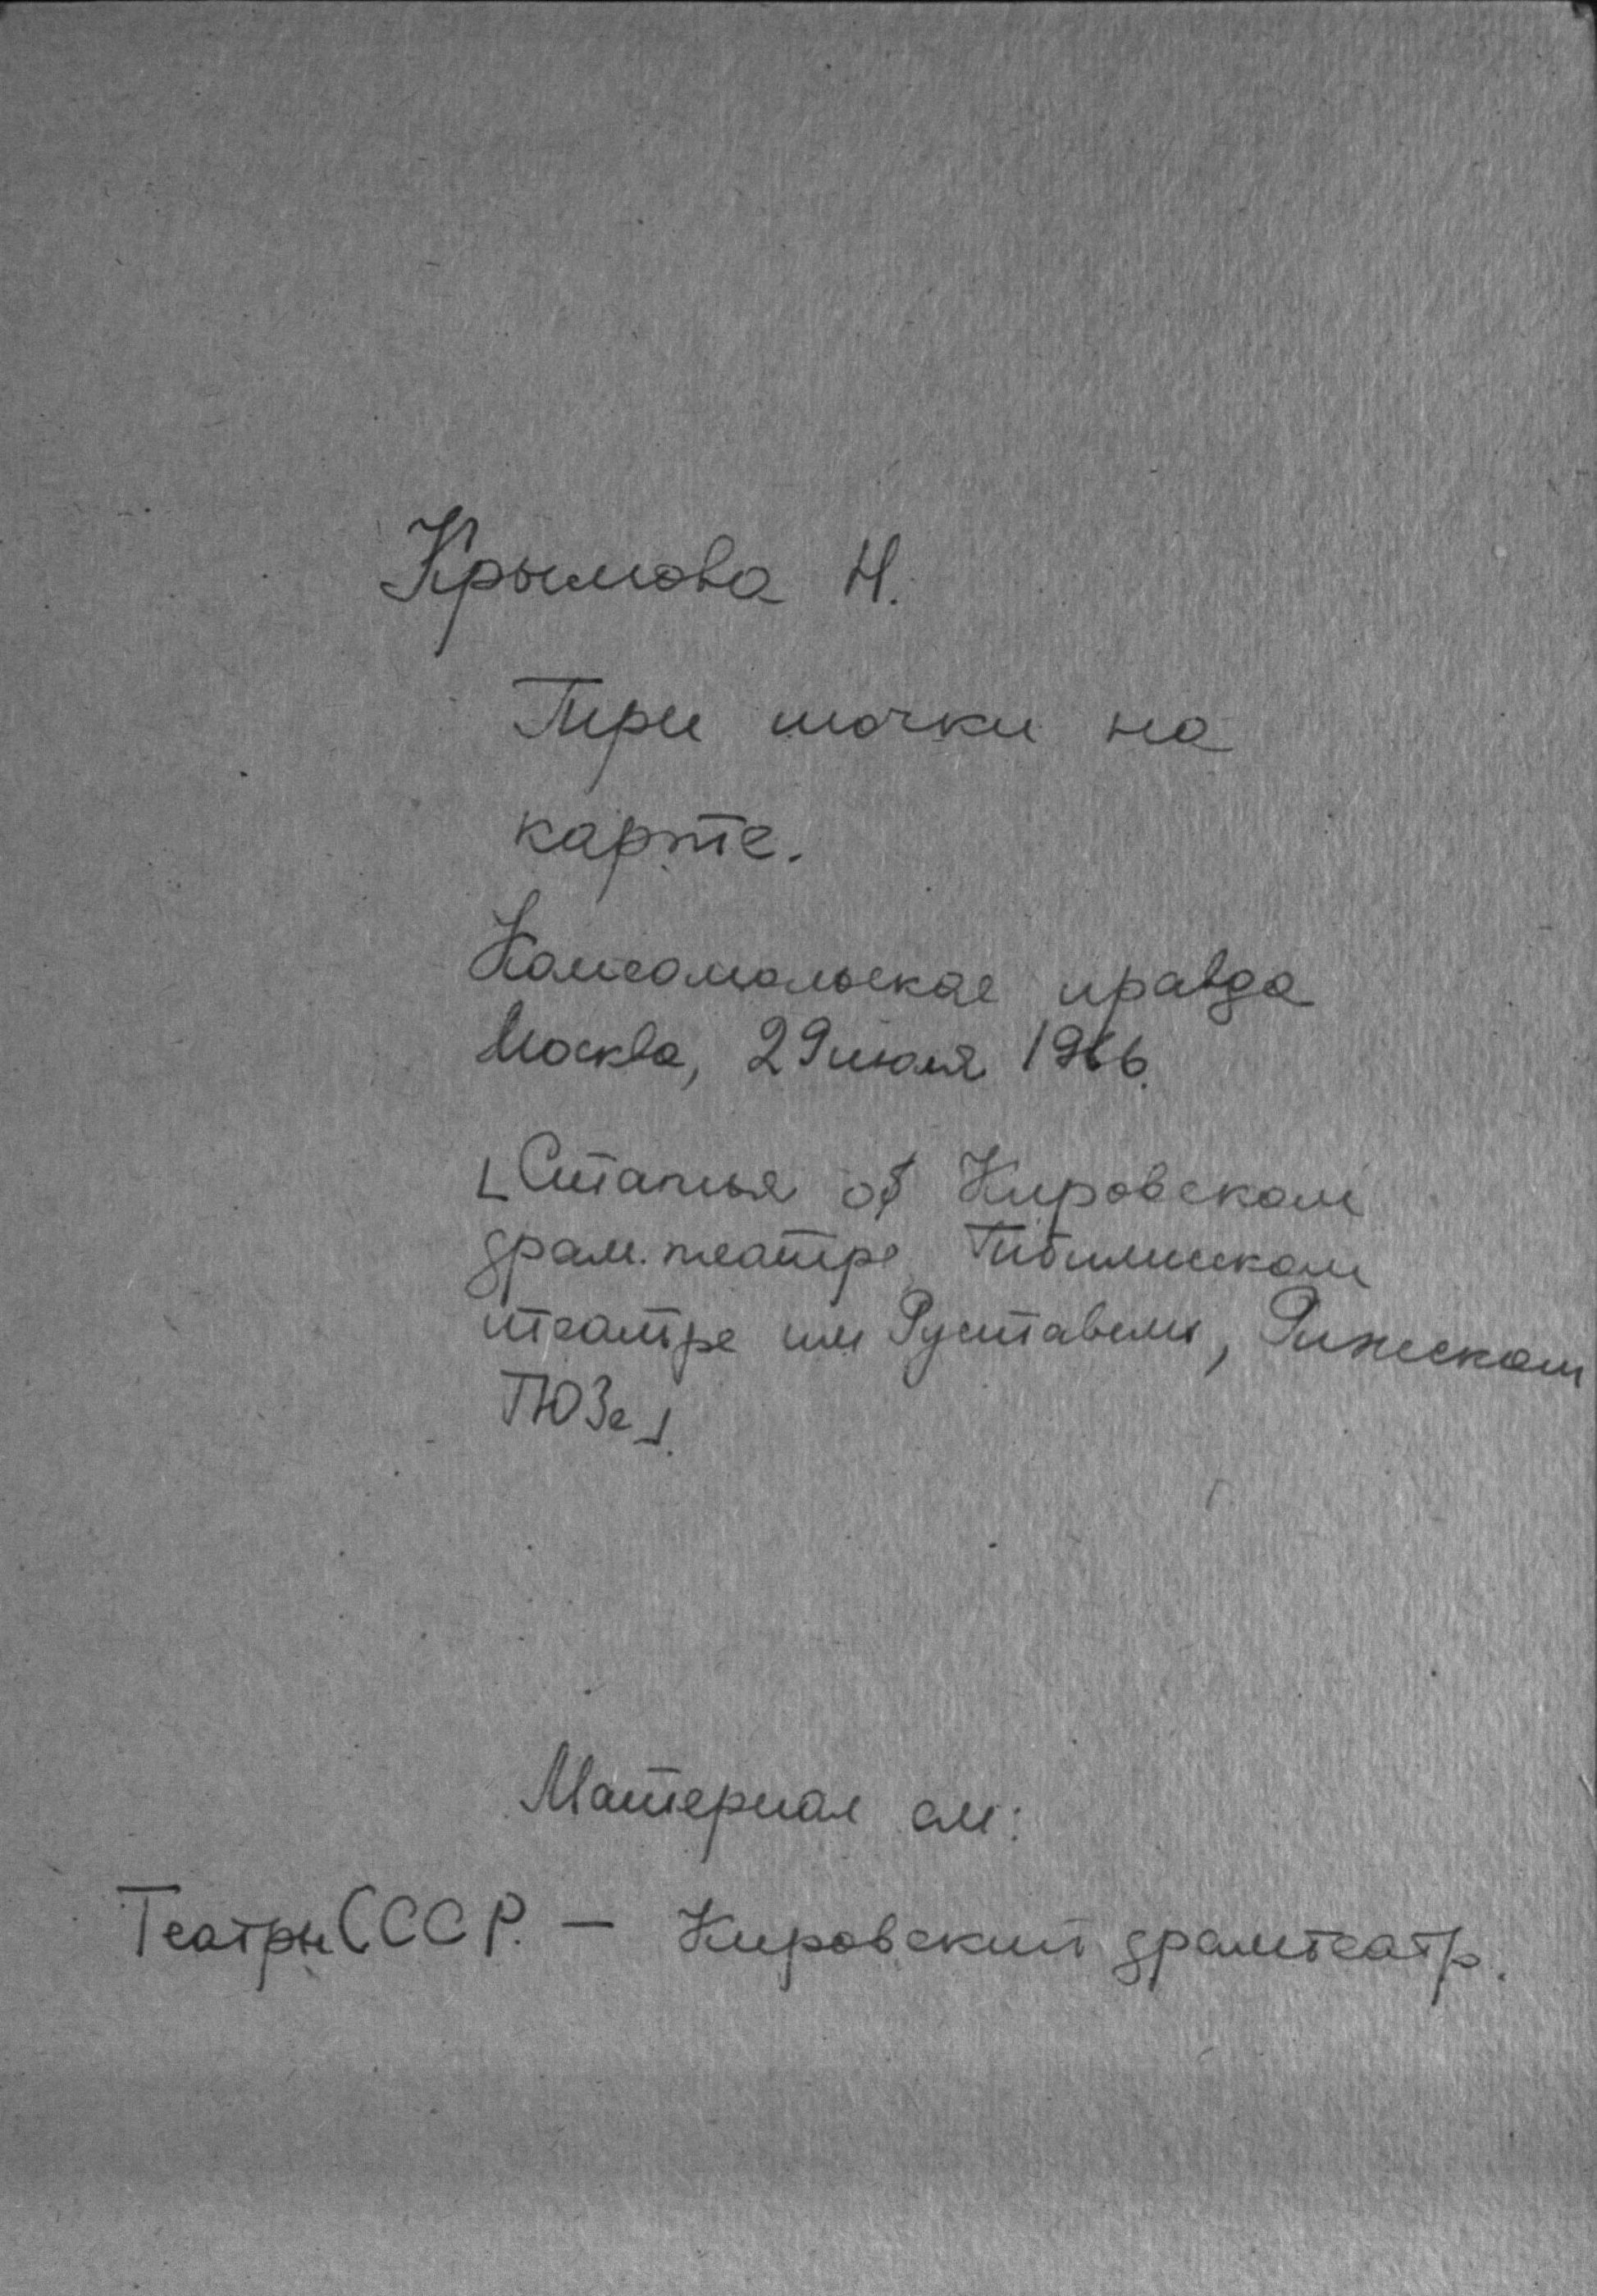 Крымова Н.
Три точки на
карте.
Комсомольская правда
Москва, 29 июля 1966.
[Статья об Кировском
драм. театре, Тбилисском
театре им Руставели, Рижском
ТЮЗе].
Материал см:
Театры СССР. — Кировский драмтеатр.